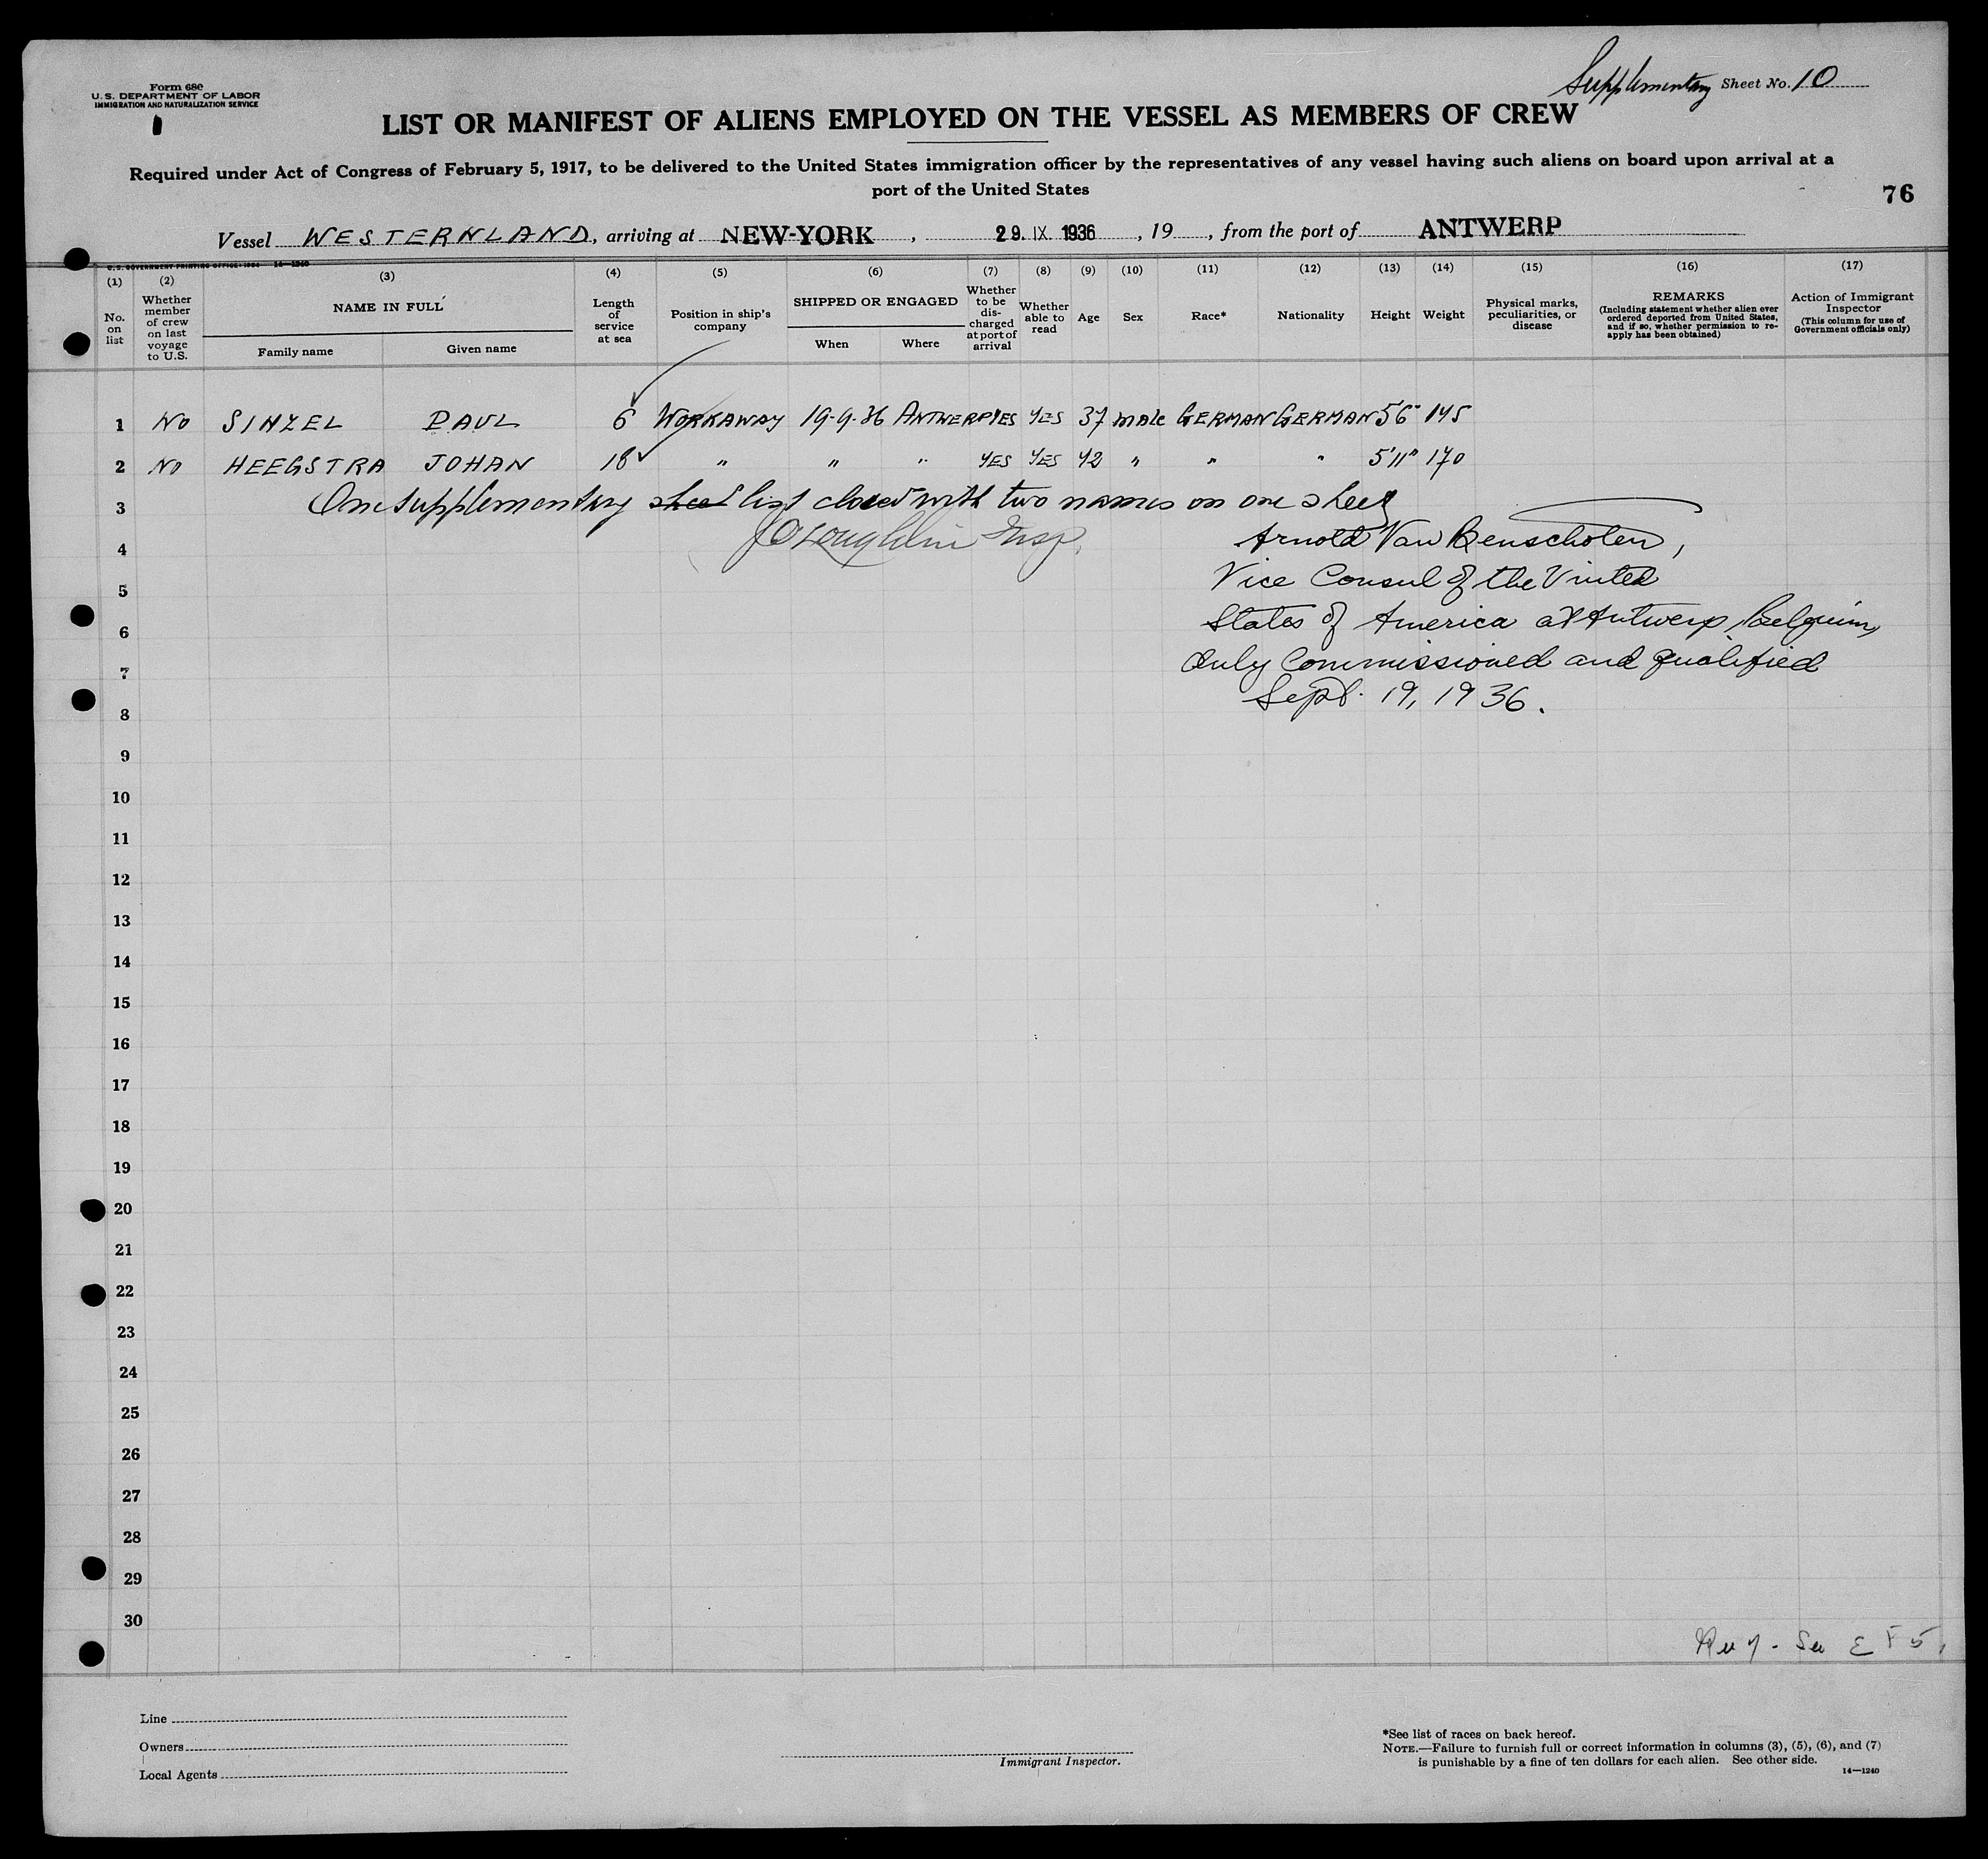 Form 680
U. S. DEPARTMENT OF LABOR
IMMIGRATION AND NATURALIZATION SERVICE
Supplementary Sheet No. 10
LIST OR MANIFEST OF ALIENS EMPLOYED ON THE VESSEL AS MEMBERS OF CREW
Required under Act of Congress of February 5, 1917, to be delivered to the United States immigration officer by the representatives of any vessel having such aliens on board upon arrival at a
port of the United States
76
Vessel WESTERNLAND, arriving at NEW-YORK, 29. IX. 1936, 19, from the port of ANTWERP
U. S. GOVERNMENT PRINTING OFFICE: 1934 14—1240
(1) No. on list
(2) Whether member of crew on last voyage to U.S.
(3) NAME IN FULL
Family name Given name
(4) Length of service at sea
(5) Position in ship's company
(6) SHIPPED OR ENGAGED
When Where
(7) Whether to be discharged at port of arrival
(8) Whether able to read
(9) Age
(10) Sex
(11) Race*
(12) Nationality
(13) Height
(14) Weight
(15) Physical marks, peculiarities, or disease
(16) REMARKS
(Including statement whether alien ever ordered deported from United States, and if so, whether permission to re-apply has been obtained)
(17) Action of Immigrant Inspector
(This column for use of Government officials only)
1 NO SINZEL PAUL 6 WORKAWAY 19-9-36 ANTWERP YES YES 37 MALE GERMAN GERMAN 5'6" 145
2 NO HEEGSTRA JOHAN 18 " " " YES YES 42 " " " 5'11" 170
3 One supplementary sheet list closed with two names on one sheet
4 J O'Loughlin Insp. Arnold Van Benscholen,
5 Vice Consul of the United
6 States of America at Antwerp, Belgium,
7 duly Commissioned and qualified
8 Sept. 19, 1936.
9
10
11
12
13
14
15
16
17
18
19
20
21
22
23
24
25
26
27
28
29
30
Line
Owners
Local Agents
Immigrant Inspector.
*See list of races on back hereof.
NOTE.—Failure to furnish full or correct information in columns (3), (5), (6), and (7)
is punishable by a fine of ten dollars for each alien. See other side.
14—1240